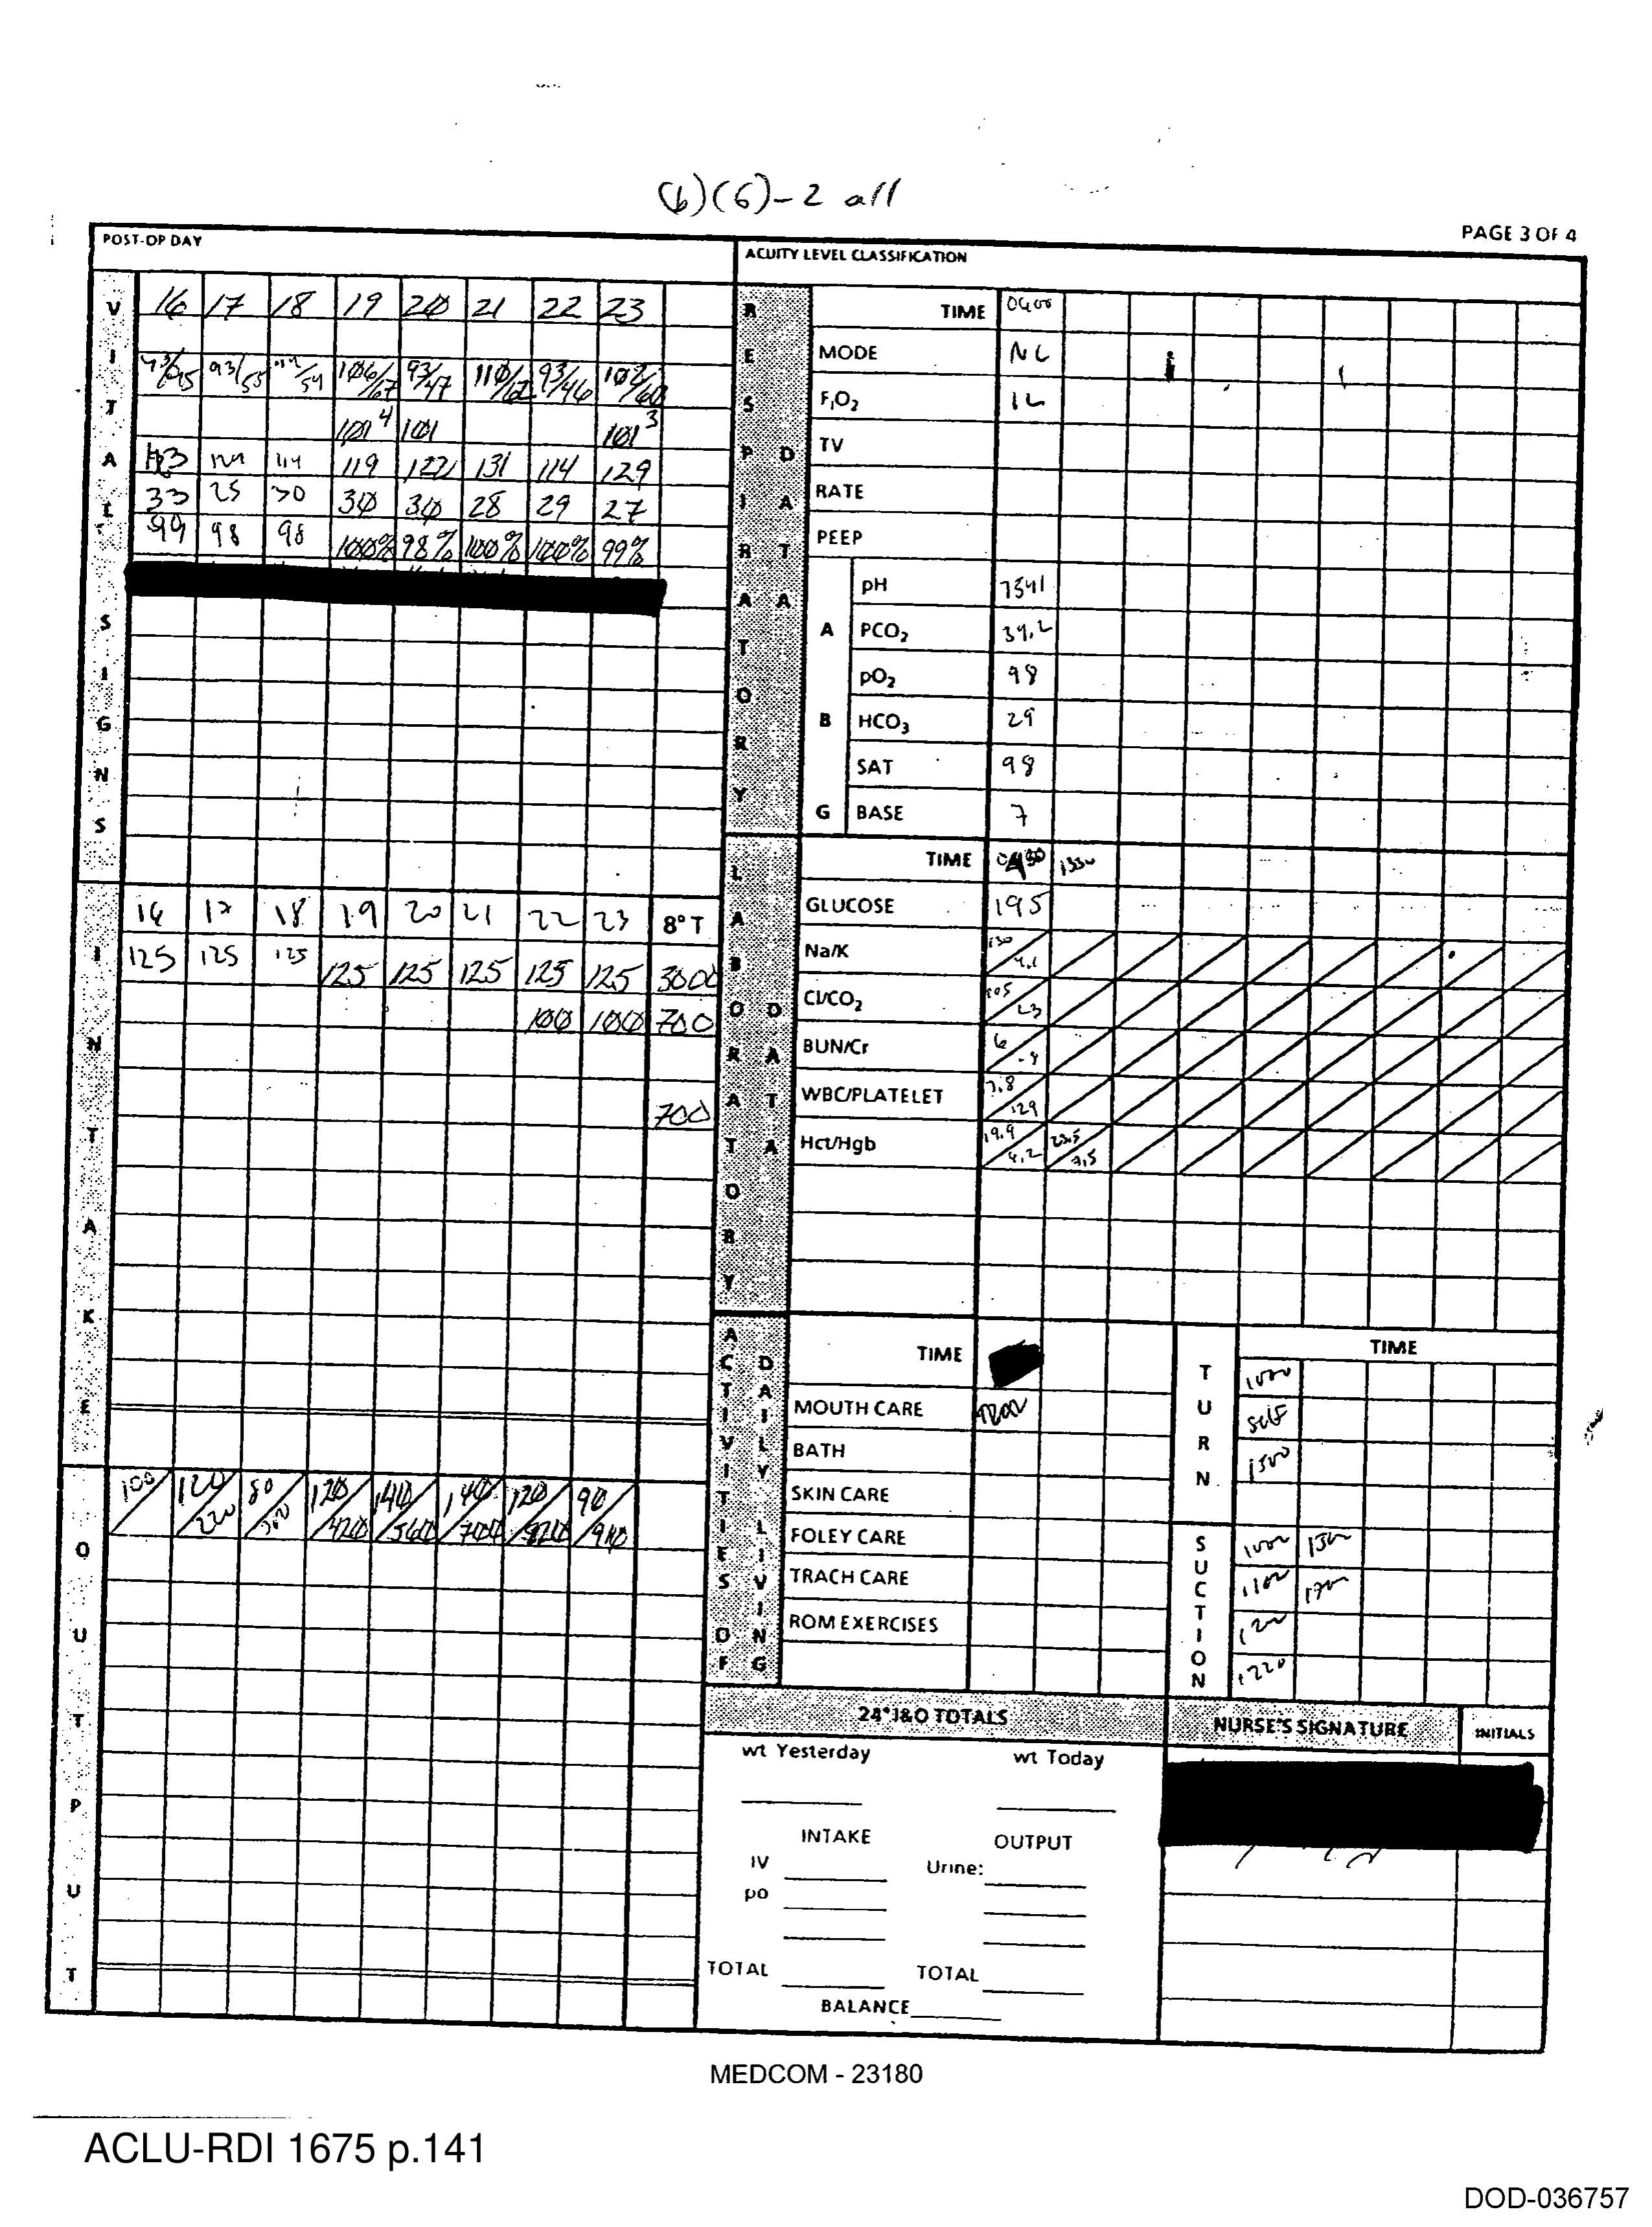 (b)(6)-2 all
PAGE 3 OF 4
POST-OP DAY
ACUITY LEVEL CLASSIFICATION
VITAL SIGNS
16 17 18 19 20 21 22 23
93/55 106/67 93/47 110/62 93/46 102/60
101⁴ 101 101³
119 122 131 114 129
33 25 30 30 30 28 29 27
99 98 98 100% 98% 100% 100% 99%
INTAKE
16 17 18 19 20 21 22 23 8°T
125 125 125 125 125 125 125 125 3000
100 100 700
700
OUTPUT
100 120 80 120 140 140 120 90
220 300 420 560 700 820 910
RESPIRATORY DATA
TIME 0400
MODE NC
F₁O₂ 1L
TV
RATE
PEEP
ABG
pH 7341
PCO₂ 39.2
pO₂ 98
HCO₃ 29
SAT 98
BASE 7
LABORATORY DATA
TIME
GLUCOSE 195
Na/K 130 4.1
Cl/CO₂ 105 23
BUN/Cr 6
WBC/PLATELET 7.8 129
Hct/Hgb 19.9 23.5 7.5
ACTIVITIES OF DAILY LIVING
TIME
MOUTH CARE
BATH
SKIN CARE
FOLEY CARE
TRACH CARE
ROM EXERCISES
TURN
TIME
1000
self
1500
SUCTION
1000 1500
1100 1700
1200
1220
24° I&O TOTALS
wt Yesterday wt Today
INTAKE OUTPUT
IV Urine:
po
TOTAL TOTAL
BALANCE
NURSE'S SIGNATURE INITIALS
MEDCOM - 23180
ACLU-RDI 1675 p.141
DOD-036757